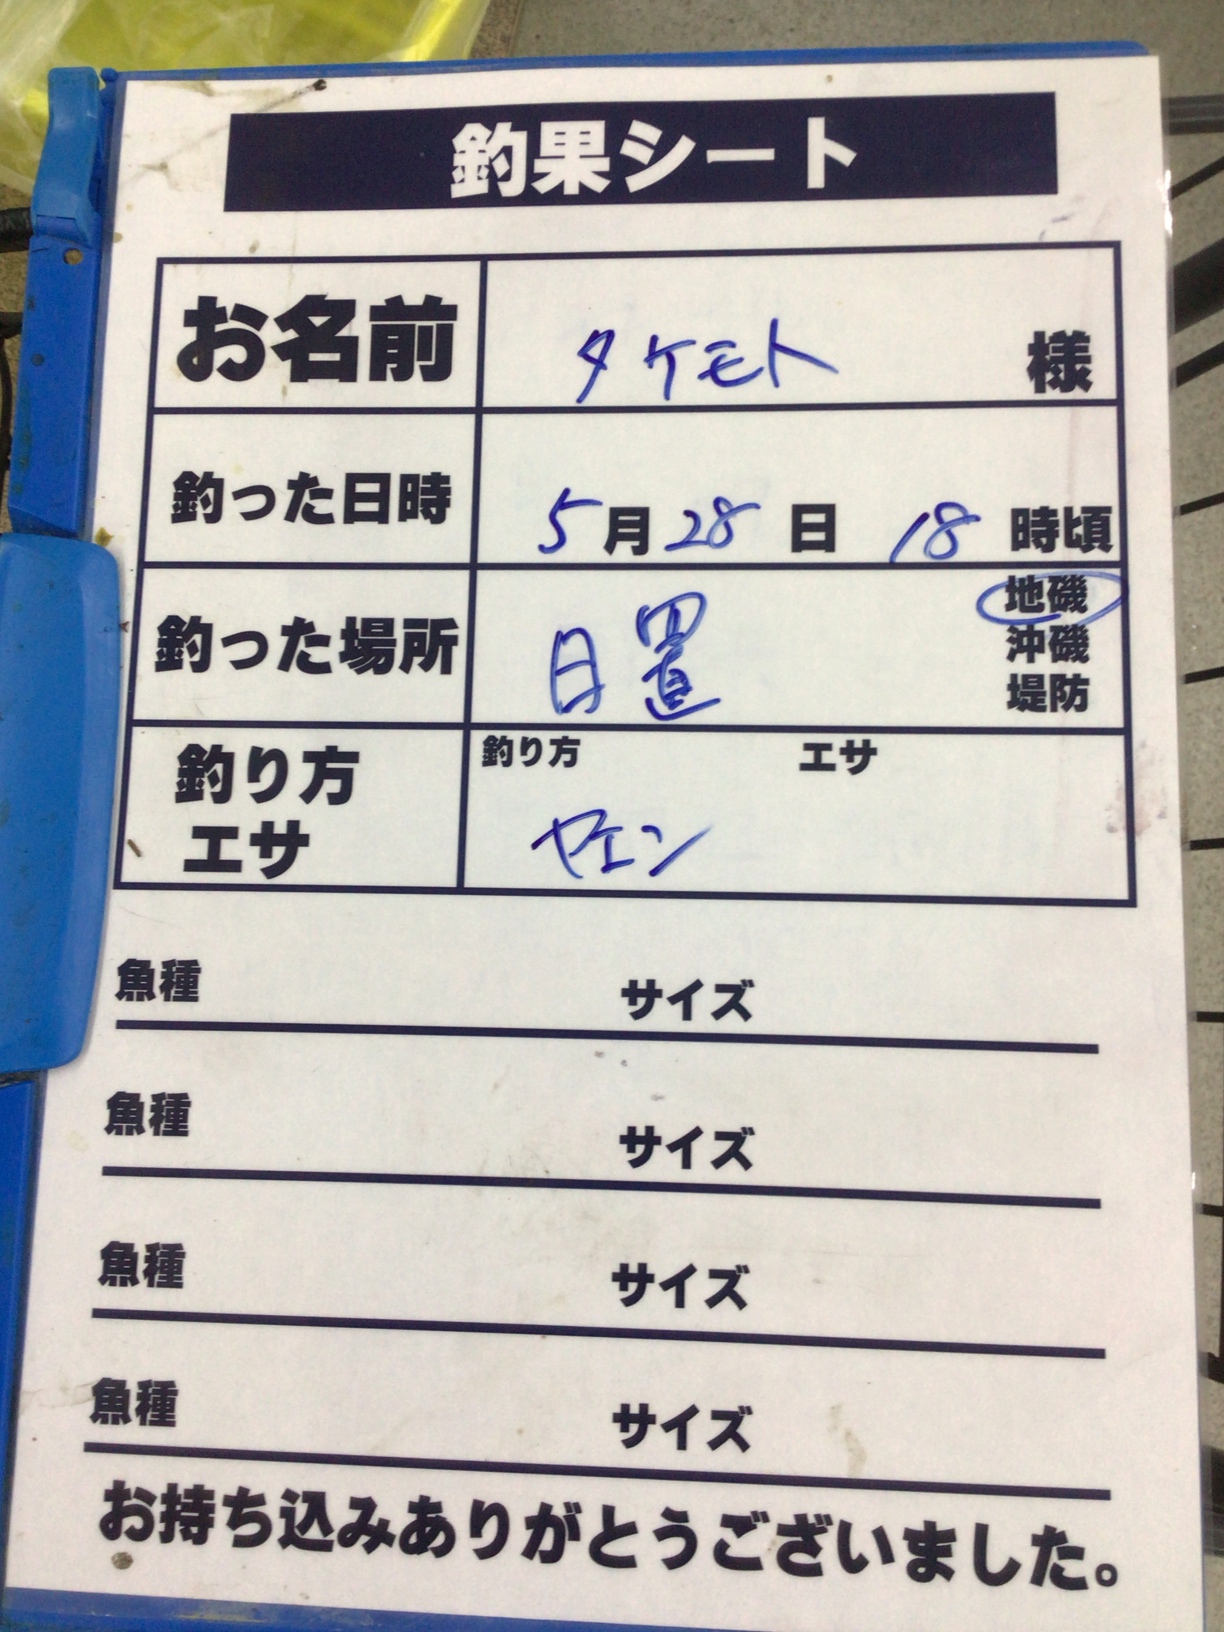 釣果シート
お名前 タケモト 様
釣った日時 5月28日 18時頃
釣った場所 日置 地磯
沖磯
堤防
釣り方 エサ
釣り方
エサ
ヤエン
魚種 サイズ
魚種 サイズ
魚種 サイズ
魚種 サイズ
お持ち込みありがとうございました。